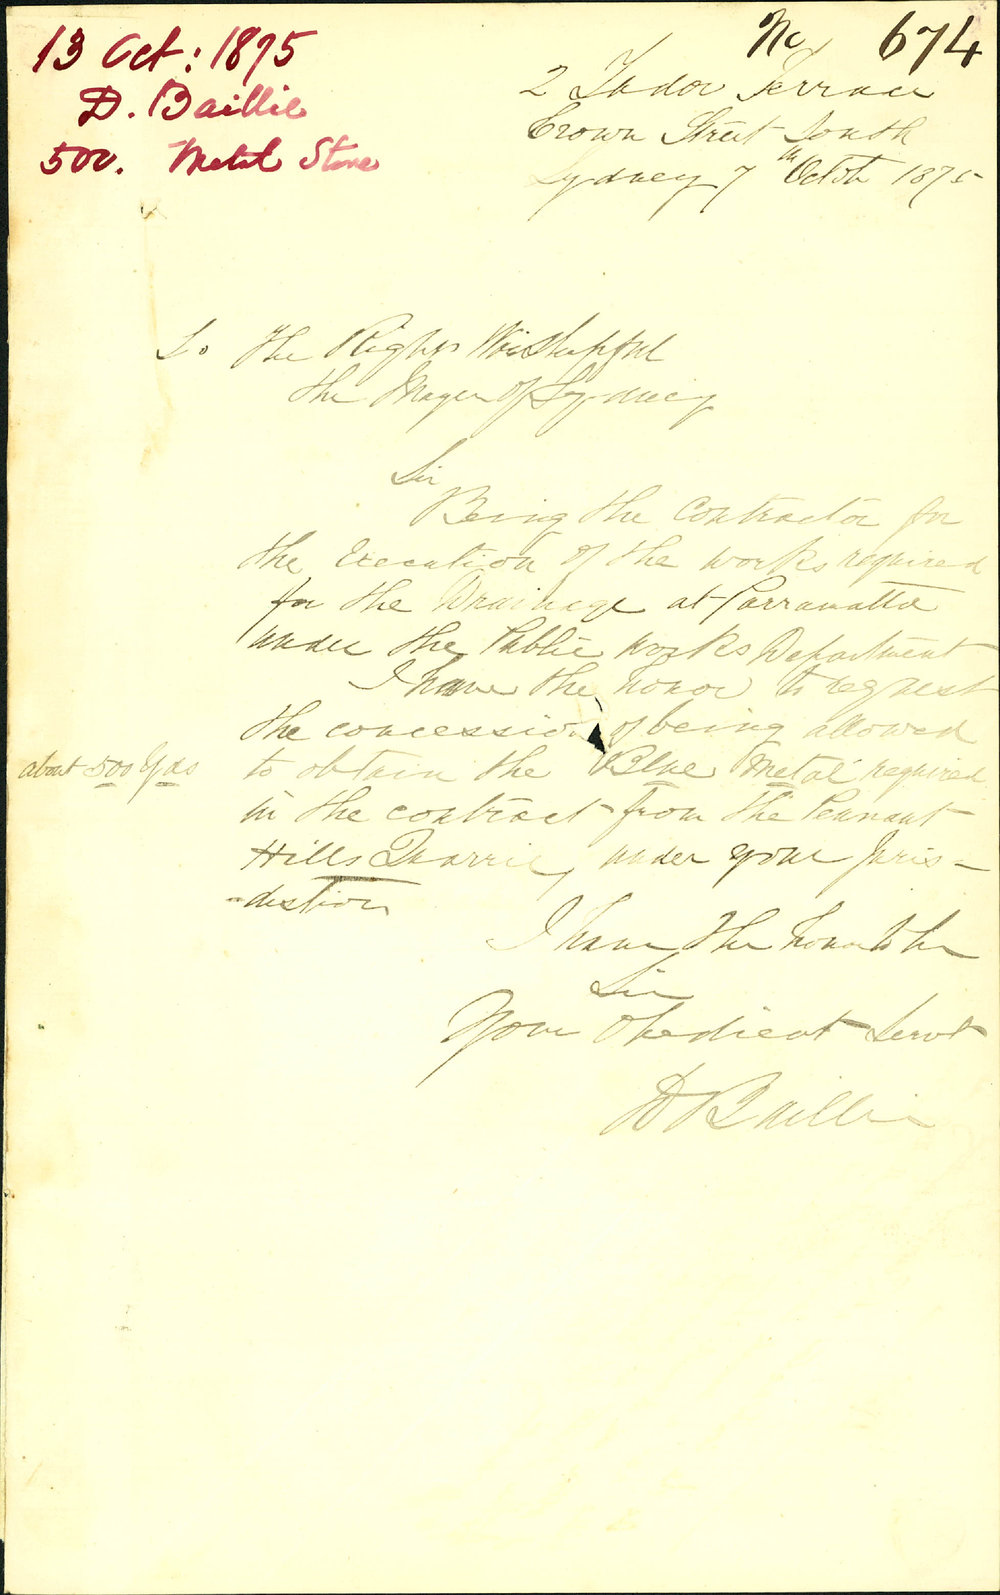 13 Oct: 1875
D. Baillie
500. Metal Stone
No 674
2 Tudor Terrace
Crown Street South
Sydney 7th Octob 1875
To The Right Worshipful
the Mayor of Sydney
Sir
Being the Contractor for
the Execution of the works required
for the Drainage at Parramatta
under the Public works Department
I have the honor to request
the concession of being allowed
about 500 Yds
to obtain the Blue Metal required
in the contract from the Pennant
Hills Quarrie, under your Juris-
-distion
I have the honor to be
Sir
Your Obedient Servt
D Baillie